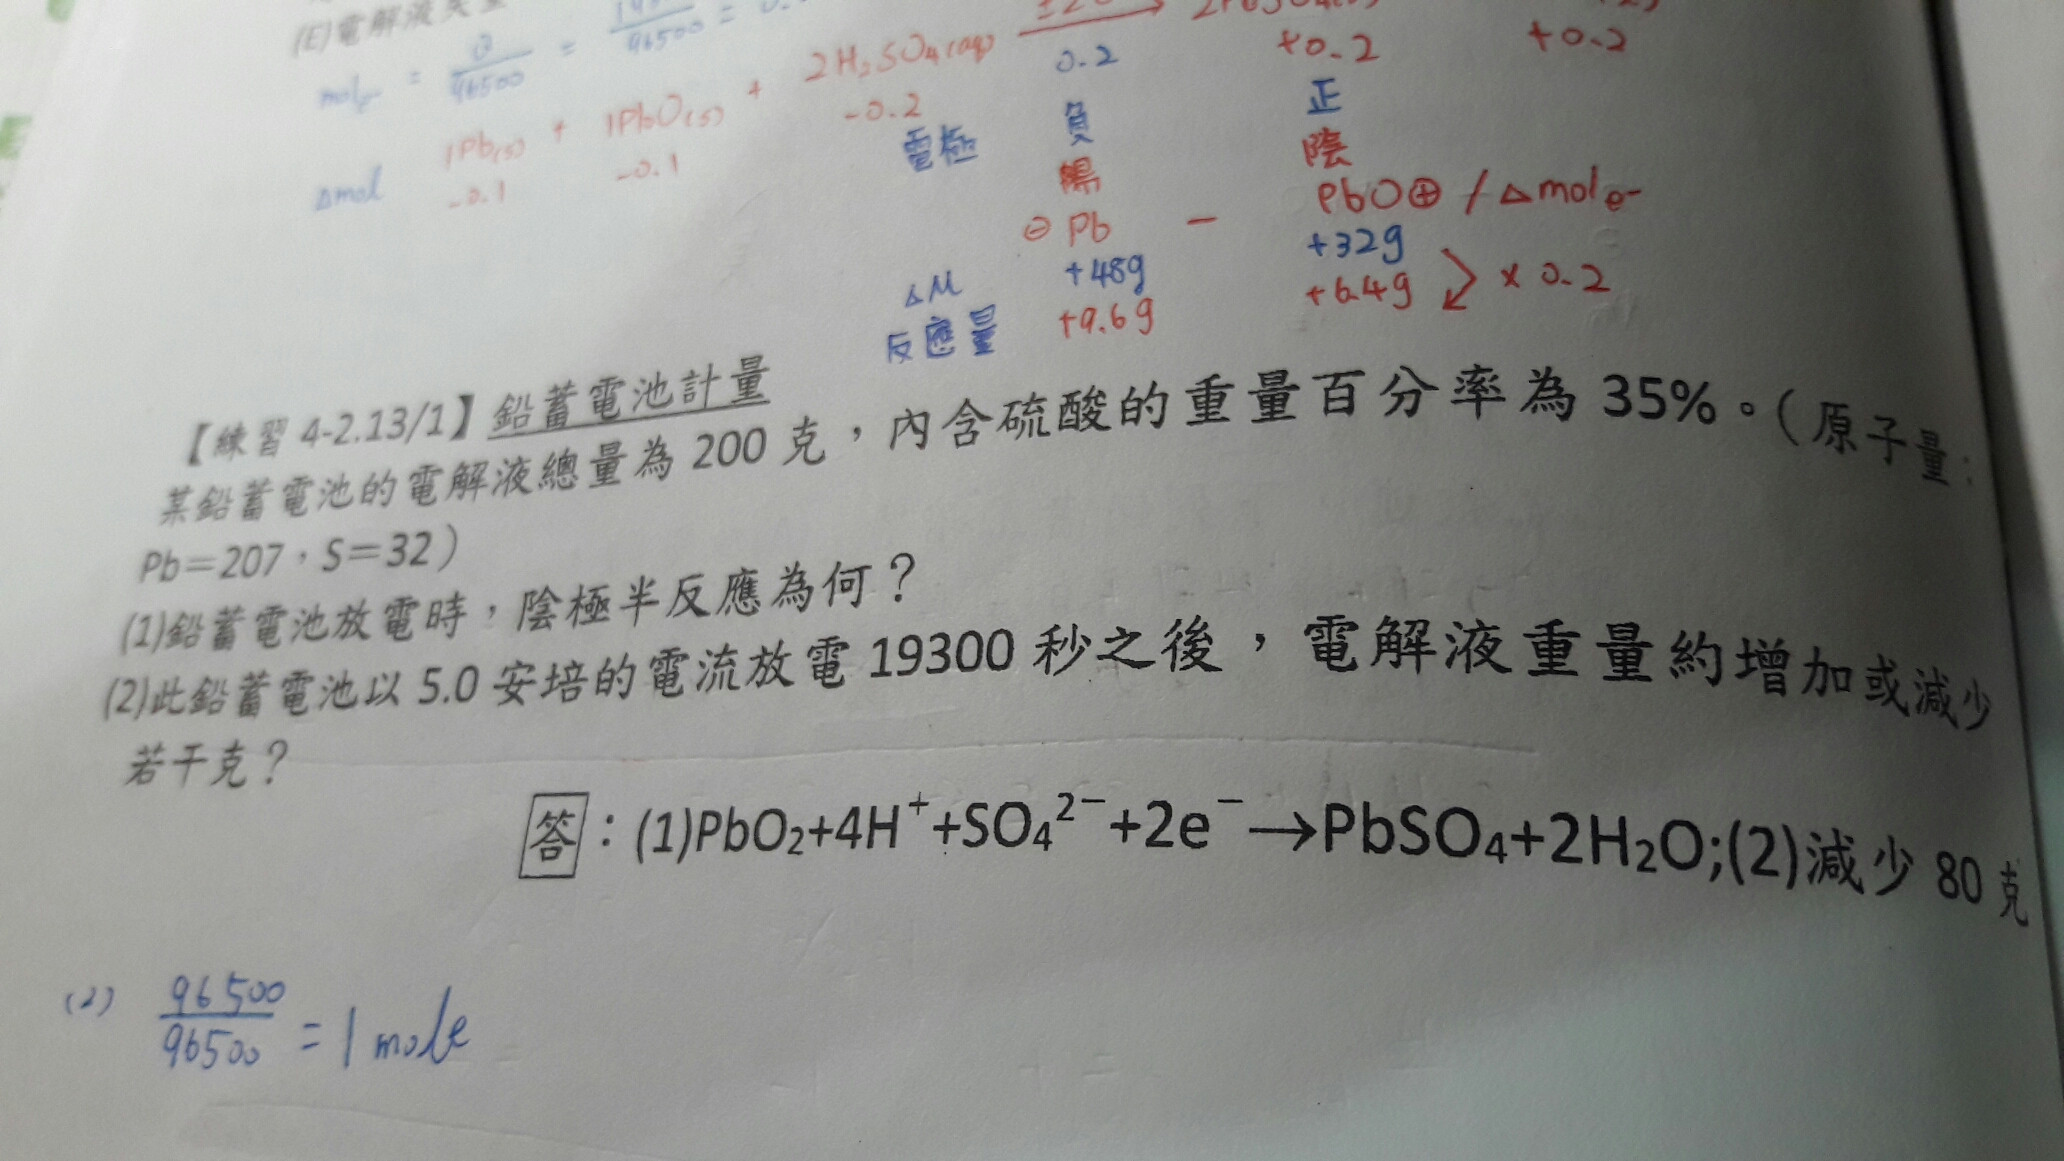 (E)電解液失重
mole⁻ = Q/96500 = /96500 = 0.
1Pb(s) + 1PbO(s) + 2H₂SO₄(aq) → 2PbSO₄(s)
Δmol -0.1 -0.1 -0.2 0.2 +0.2 +0.2
電極 負 正
陽 陰
⊖ Pb — PbO⊕ / Δmole⁻
ΔM +48g +32g
反應量 +9.6g +6.4g × 0.2
【練習 4-2.13/1】鉛蓄電池計量
某鉛蓄電池的電解液總量為 200 克,內含硫酸的重量百分率為 35%。(原子量:
Pb=207,S=32)
(1)鉛蓄電池放電時,陰極半反應為何?
(2)此鉛蓄電池以 5.0 安培的電流放電 19300 秒之後,電解液重量約增加或減少
若干克?
答:(1)PbO₂+4H⁺+SO₄²⁻+2e⁻→PbSO₄+2H₂O;(2)減少 80 克
(2) 96500/96500 = 1 mole